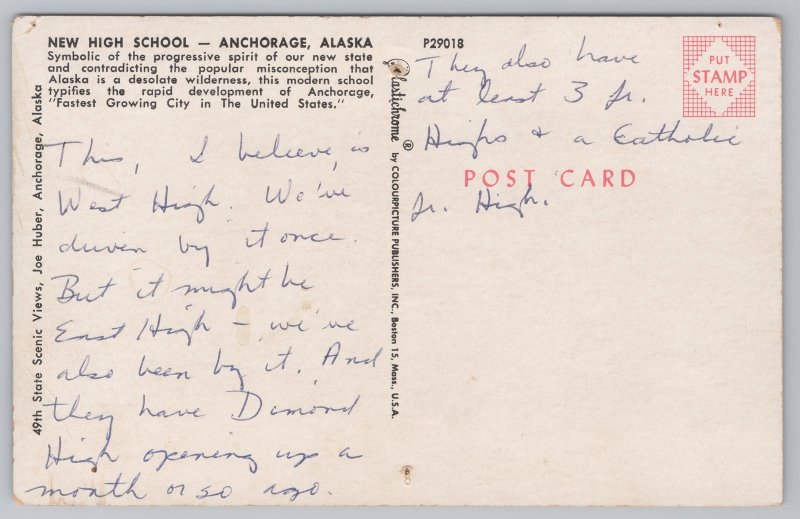 NEW HIGH SCHOOL — ANCHORAGE, ALASKA
Symbolic of the progressive spirit of our new state
and contradicting the popular misconception that
Alaska is a desolate wilderness, this modern school
typifies the rapid development of Anchorage,
"Fastest Growing City in The United States."
This, I believe, is
West High. We've
driven by it once.
But it might be
East High – we've
also been by it. And
they have Dimond
High opening up a
month or so ago.
49th State Scenic Views, Joe Huber, Anchorage, Alaska
Plastichrome ® by COLOURPICTURE PUBLISHERS, INC., Boston 15, Mass., U.S.A.
P29018
They also have
at least 3 Jr.
Highs & a Catholic
Jr. High.
POST CARD
PUT
STAMP
HERE